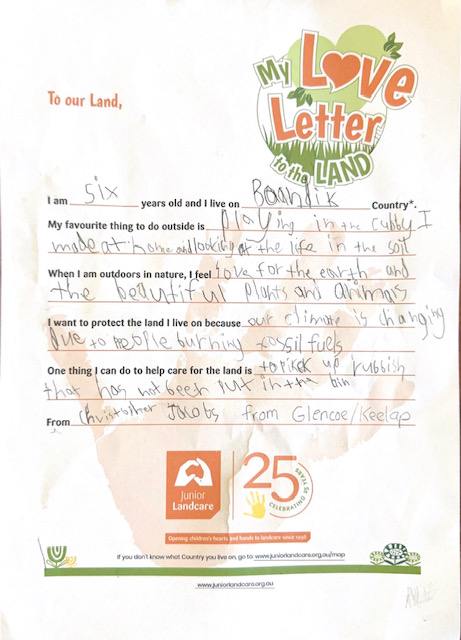 My Love
Letter
to the LAND
To our Land,
I am six years old and I live on Boandik Country*.
My favourite thing to do outside is playing in the cubby I
made at home and looking at the life in the soil
When I am outdoors in nature, I feel love for the earth and
the beautiful plants and animals
I want to protect the land I live on because our climate is changing
Due to people burning fossil fuels
One thing I can do to help care for the land is to pick up rubbish
that has not been put in the bin
From Christopher Jacobs from Glencoe/Keelap
Junior
Landcare
25
CELEBRATING 25 YEARS
Opening children's hearts and hands to landcare since 1998
If you don't know what Country you live on, go to: www.juniorlandcare.org.au/map
www.juniorlandcare.org.au